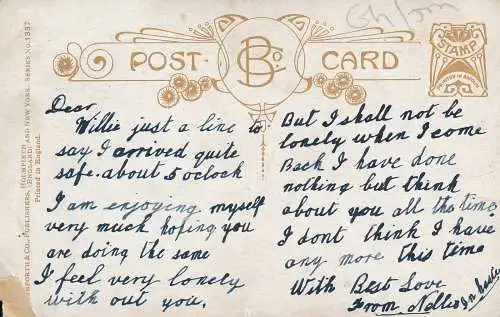 POST CARD
BCo.
STAMP
BAMFORTH & CO., PUBLISHERS, HOLMFIRTH (ENGLAND) AND NEW YORK. SERIES NO. 1337
Printed in England.
Dear
Willie just a line to
say I arrived quite
safe. about 5 oclock
I am enjoying myself
very much hoping you
are doing the same
I feel very lonely
with out you,
But I shall not be
lonely when I come
Back I have done
nothing but think
about you all the time
I dont think I have
any more this time
With Best Love
From Nellie